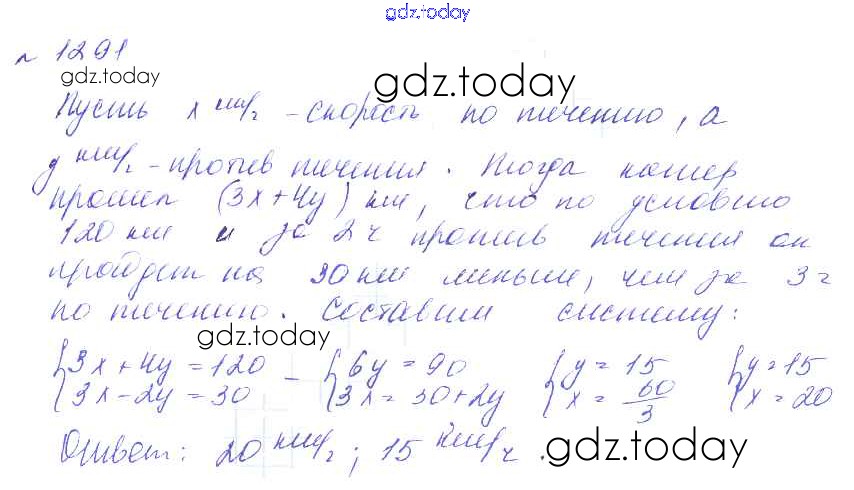 gdz.today
№ 1291
gdz.today
gdz.today
Пусть x км/ч - скорость по течению, а
y км/ч - против течения. Тогда катер
прошел (3x+4y) км, что по условию
120 км и за 2 ч против течения он
пройдет на 30 км меньше, чем за 3 ч
по течению. Составим систему:
gdz.today
{3x+4y=120 {6y=90 {y=15 {y=15
{3x-2y=30 - {3x=30+2y {x=60/3 {x=20
Ответ: 20 км/ч; 15 км/ч.
gdz.today